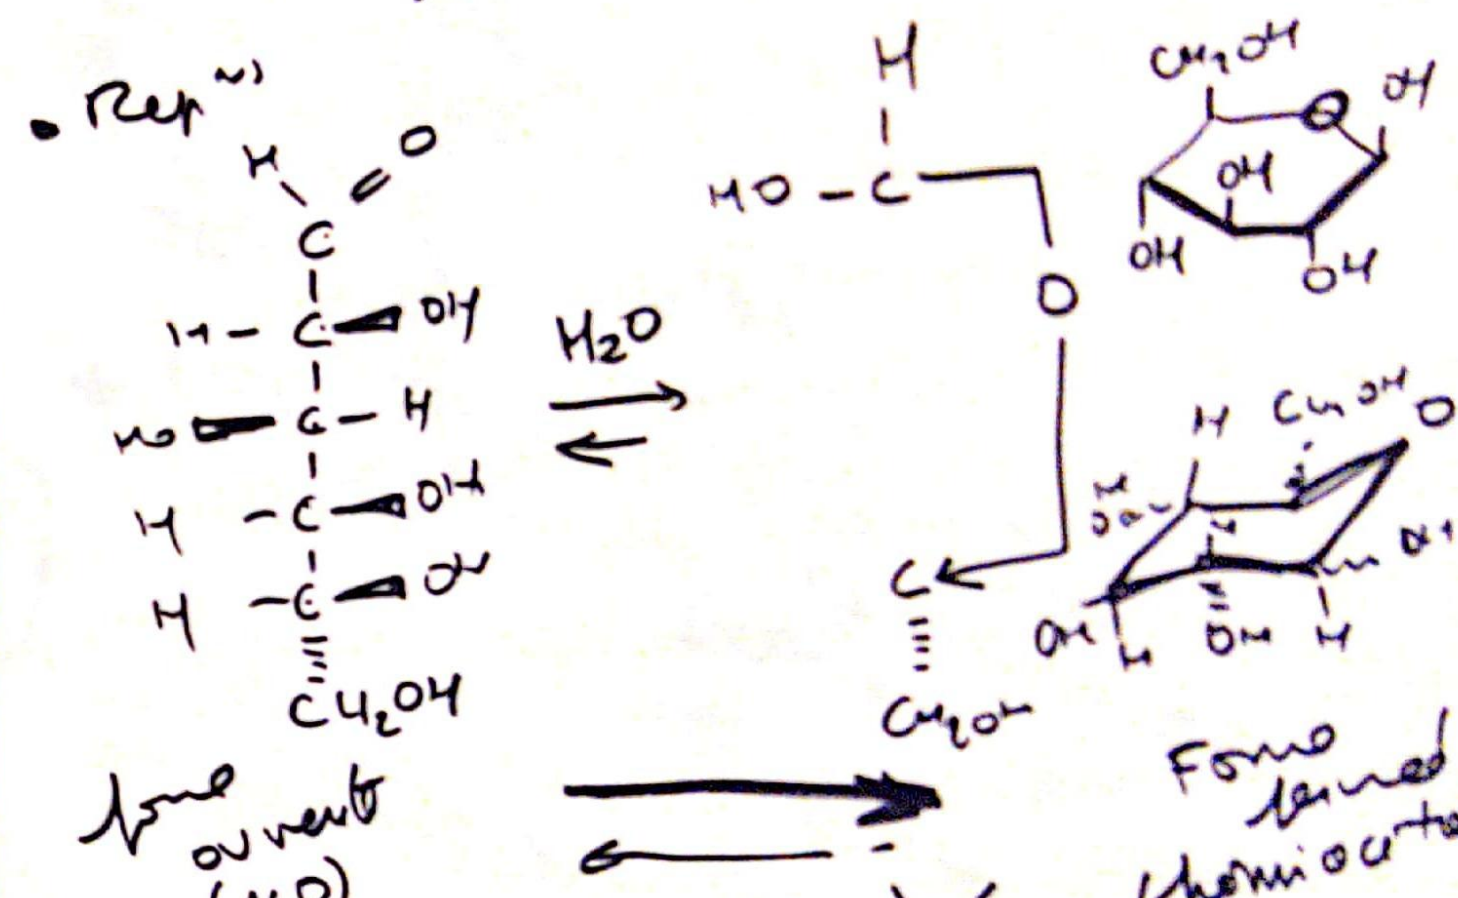 • Rep
H O
C
H - C OH
HO C - H
H - C OH
H - C OH
CH₂OH
H₂O
H
HO - C
O
C
CH₂OH
CH₂OH
O OH
OH
OH OH
H CH₂OH O
HO H OH
OH H OH H
forme
ouverte
Forme
fermée